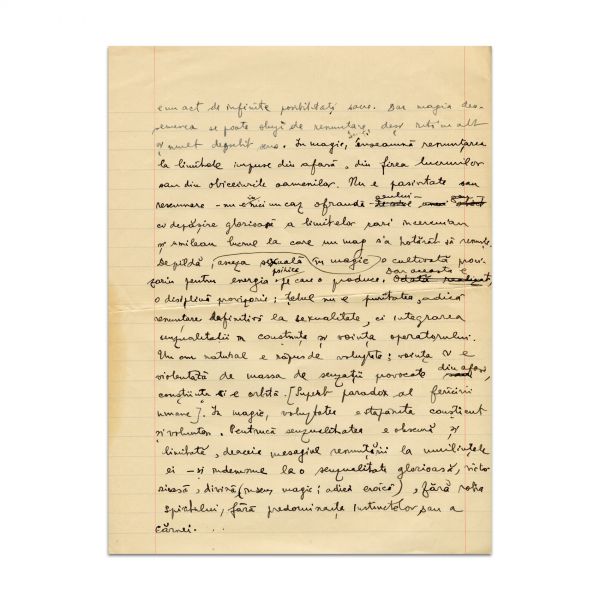 e un act de infinite posibilități sacre. Dar magia
se poate sluji de renunțare, deși într'un alt
și mult deosebit sens. În magie, înseamnă renunțarea
la limitele impuse din afară, din firea lucrurilor
sau din obiceiurile oamenilor. Nu e pasivitate sau
resemnare - nu e nici un caz ofranda
ci depășire glorioasă a limitelor
și lucrul la care un mag s'a hotărât să renunțe.
De pildă, asceza sexuală în magie e cultivată provi-
zoriu pentru energia psihică pe care o produce. Dar aceasta e
o disciplină provizorie; țelul nu e puritatea, adică
renunțare definitivă la sexualitate, ci integrarea
sexualității în conștiința și voința operatorului.
Un om natural e răpus de voluptate: voința îi e
violentată de massa de senzații provocate din afară,
conștiința îi e orbită. [Superb paradox al fericirii
umane]. În magie, voluptatea e stăpânită conștient
și voluntar. Pentrucă sexualitatea e obscură și
limitată, deaceia mesagiul renunțării la
ei - și îndemnul la o sexualitate glorioasă, victo-
rioasă, divină (în sens magic; adică eroică), fără
spiritului, fără predominanța instinctelor sau a
cărnei. . .